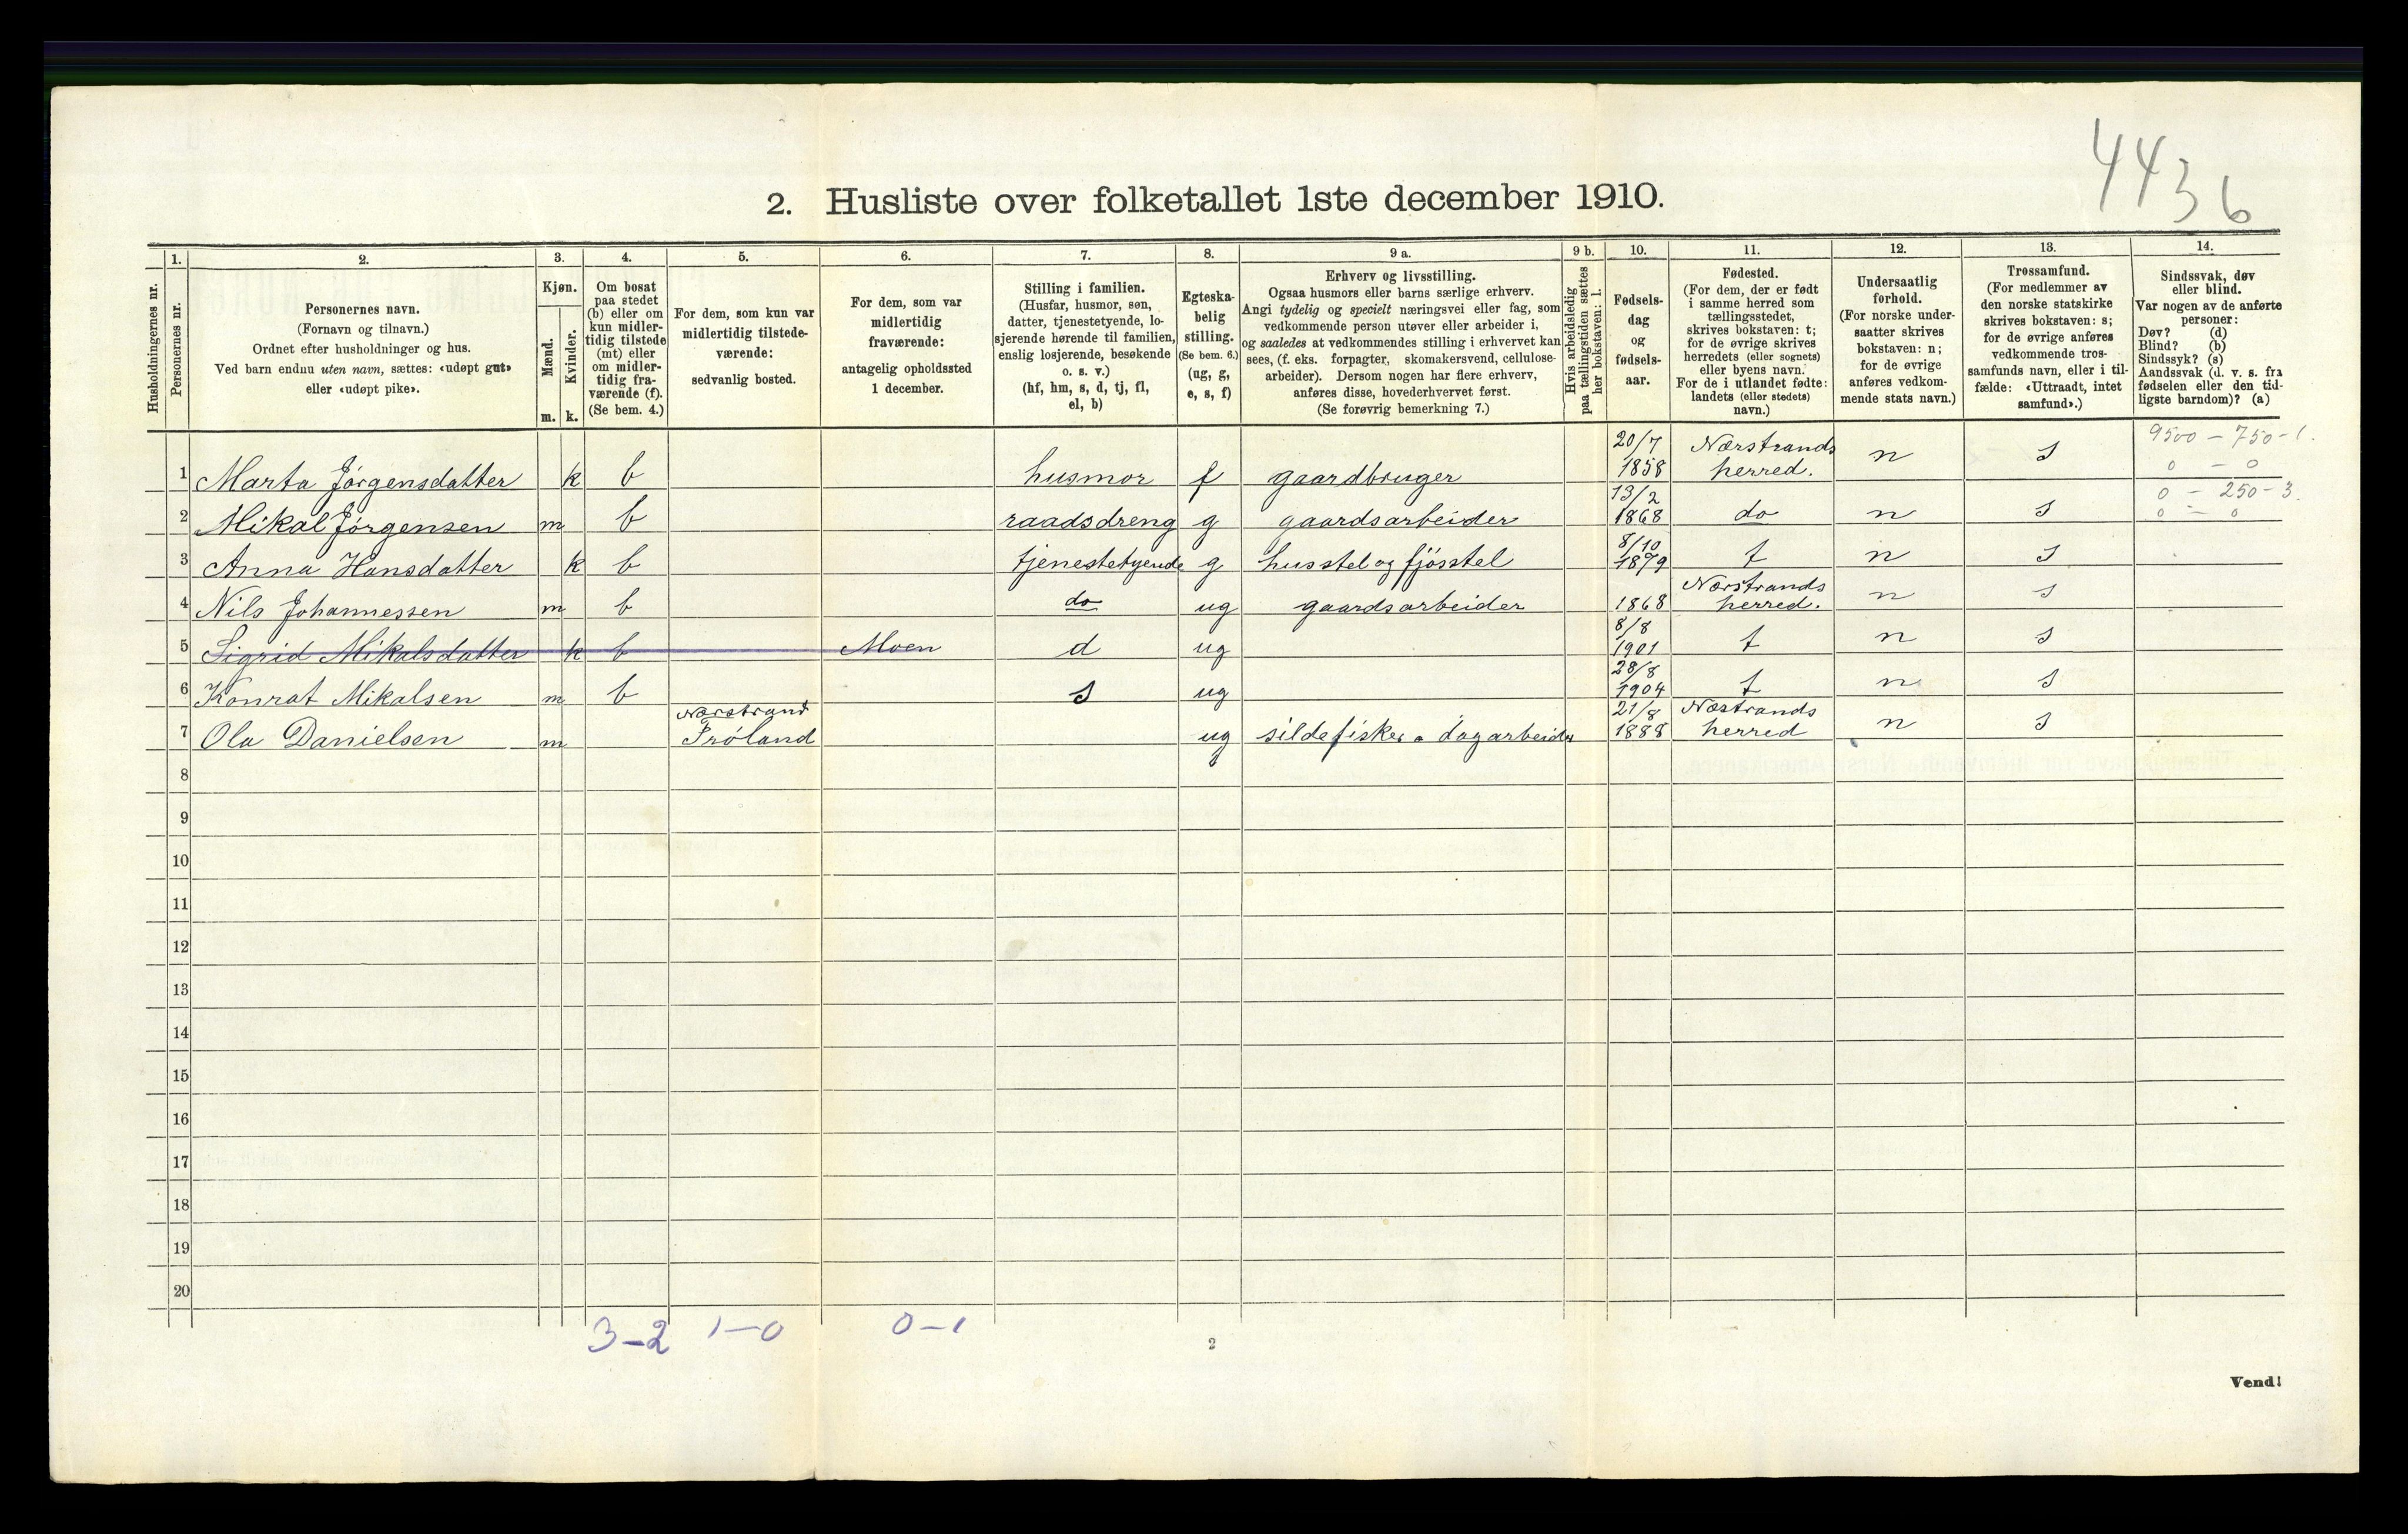 4436
2. Husliste over folketallet 1ste december 1910.
1. 2. 3. 4. 5. 6. 7. 8. 9 a. 9 b. 10. 11. 12. 13. 14.
Husholdningernes nr.
Personernes nr.
Personernes navn.
(Fornavn og tilnavn.)
Ordnet efter husholdninger og hus.
Ved barn endnu uten navn, sættes: «udøpt gut»
eller «udøpt pike».
Kjøn.
Mænd.
Kvinder.
m. k.
Om bosat
paa stedet
(b) eller om
kun midler-
tidig tilstede
(mt) eller
om midler-
tidig fra-
værende (f).
(Se bem. 4.)
For dem, som kun var
midlertidig tilstede-
værende:
sedvanlig bosted.
For dem, som var
midlertidig
fraværende:
antagelig opholdssted
1 december.
Stilling i familien.
(Husfar, husmor, søn,
datter, tjenestetyende, lo-
sjerende hørende til familien,
enslig losjerende, besøkende
o. s. v.)
(hf, hm, s, d, tj, fl,
el, b)
Egteska-
belig
stilling.
(Se bem. 6.)
(ug, g,
e, s, f)
Erhverv og livsstilling.
Ogsaa husmors eller barns særlige erhverv.
Angi tydelig og specielt næringsvei eller fag, som
vedkommende person utøver eller arbeider i,
og saaledes at vedkommendes stilling i erhvervet kan
sees, (f. eks. forpagter, skomakersvend, cellulose-
arbeider). Dersom nogen har flere erhverv,
anføres disse, hovederhvervet først.
(Se forøvrig bemerkning 7.)
Hvis arbeidsledig
paa tællingstiden sættes
her bokstaven: l.
Fødsels-
dag
og
fødsels-
aar.
Fødested.
(For dem, der er født
i samme herred som
tællingsstedet,
skrives bokstaven: t;
for de øvrige skrives
herredets (eller sognets)
eller byens navn.
For de i utlandet fødte:
landets (eller stedets)
navn.)
Undersaatlig
forhold.
(For norske under-
saatter skrives
bokstaven: n;
for de øvrige
anføres vedkom-
mende stats navn.)
Trossamfund.
(For medlemmer av
den norske statskirke
skrives bokstaven: s;
for de øvrige anføres
vedkommende tros-
samfunds navn, eller i til-
fælde: «Uttraadt, intet
samfund».)
Sindssvak, døv
eller blind.
Var nogen av de anførte
personer:
Døv? (d)
Blind? (b)
Sindssyk? (s)
Aandssvak (d. v. s. fra
fødselen eller den tid-
ligste barndom)? (a)
1 Marta Jørgensdatter k b husmor f gaardbruger 20/7 1858 Nærstrands herred. n s 9500 - 750 - 1. 0 - 0
2 Mikal Jørgensen m b raadsdreng g gaardsarbeider 13/2 1868 do n s 0 - 250 - 3. 0 - 0
3 Anna Hansdatter k b tjenestetyende g husstel og fjøsstel 8/10 1879 t n s
4 Nils Johannessen m b do ug gaardsarbeider 1868 Nærstrands herred. n s
5 Sigrid Mikalsdatter k b Moen d ug 8/8 1901 t n s
6 Konrat Mikalsen m b s ug 28/8 1904 t n s
7 Ola Danielsen m Nærstrand Frøland ug sildefisker o dagarbeider 21/8 1888 Næstrands herred n s
8
9
10
11
12
13
14
15
16
17
18
19
20
3-2 1-0 0-1
2
Vend!